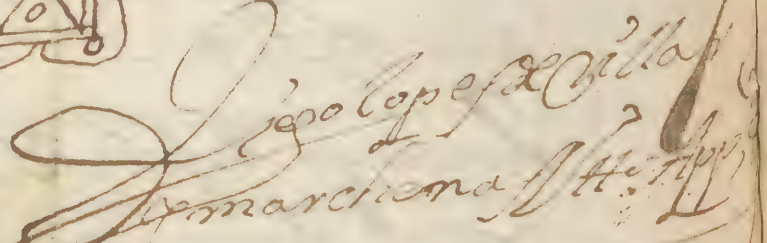 Diego lopes de Villa
de marchena